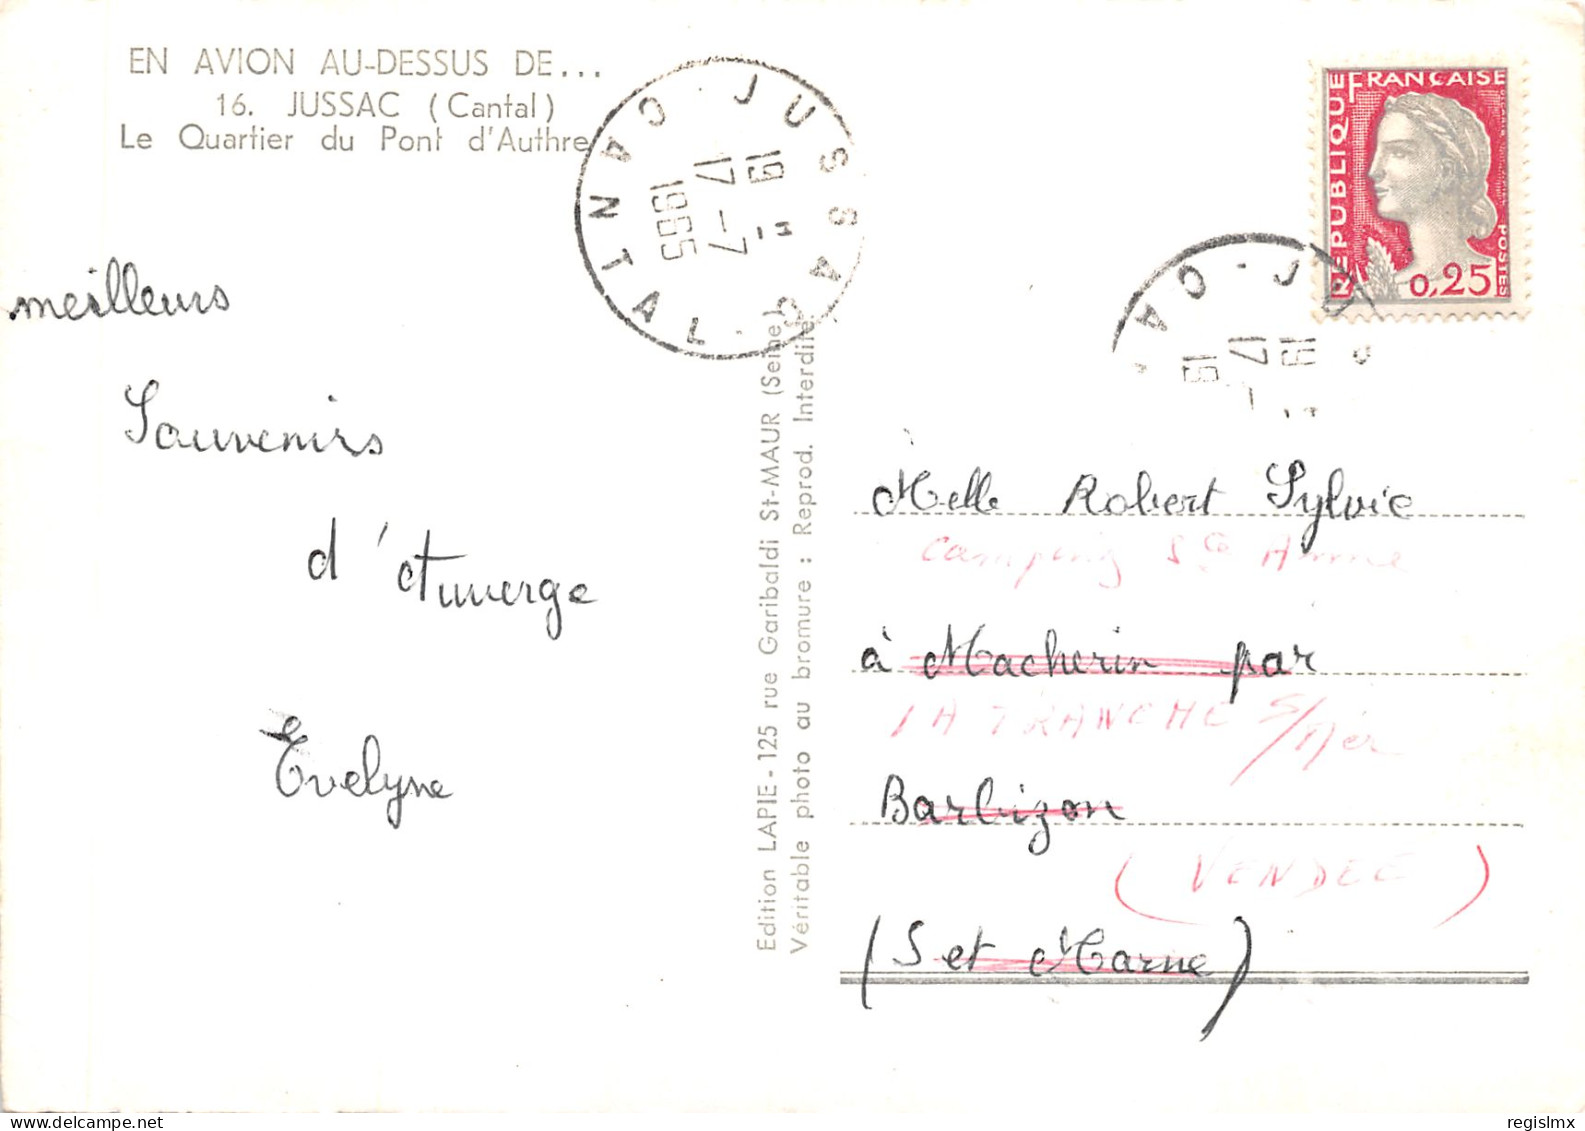 EN AVION AU-DESSUS DE...
16. JUSSAC (Cantal)
Le Quartier du Pont d'Authre
JUSSAC
CANTAL
19 H
17 -7
1965
REPUBLIQUE FRANÇAISE
POSTES
0,25
J
CA
19
17
19
meilleurs
Souvenirs
d'Auverge
Evelyne
Edition LAPIE - 125 rue Garibaldi St-MAUR (Seine)
Véritable photo au bromure : Reprod. Interdite
Melle Robert Sylvie
Camping Ste Anne
à Macherin par
LA TRANCHE S/Mer
Barbizon
(VENDEE)
(S et Marne)
regislmx